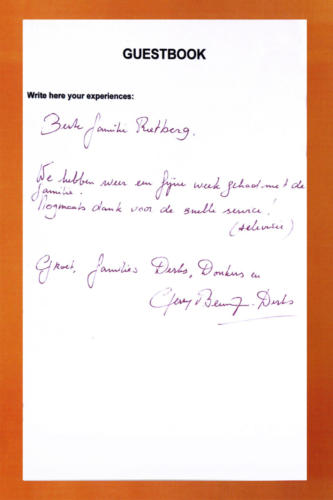 GUESTBOOK
Write here your experiences:
Beste familie Rietberg,
We hebben weer een fijne week gehad met de
familie.
Nogmaals dank voor de snelle service!
(televisie)
Groet, families Derks, Donkers en
Derks